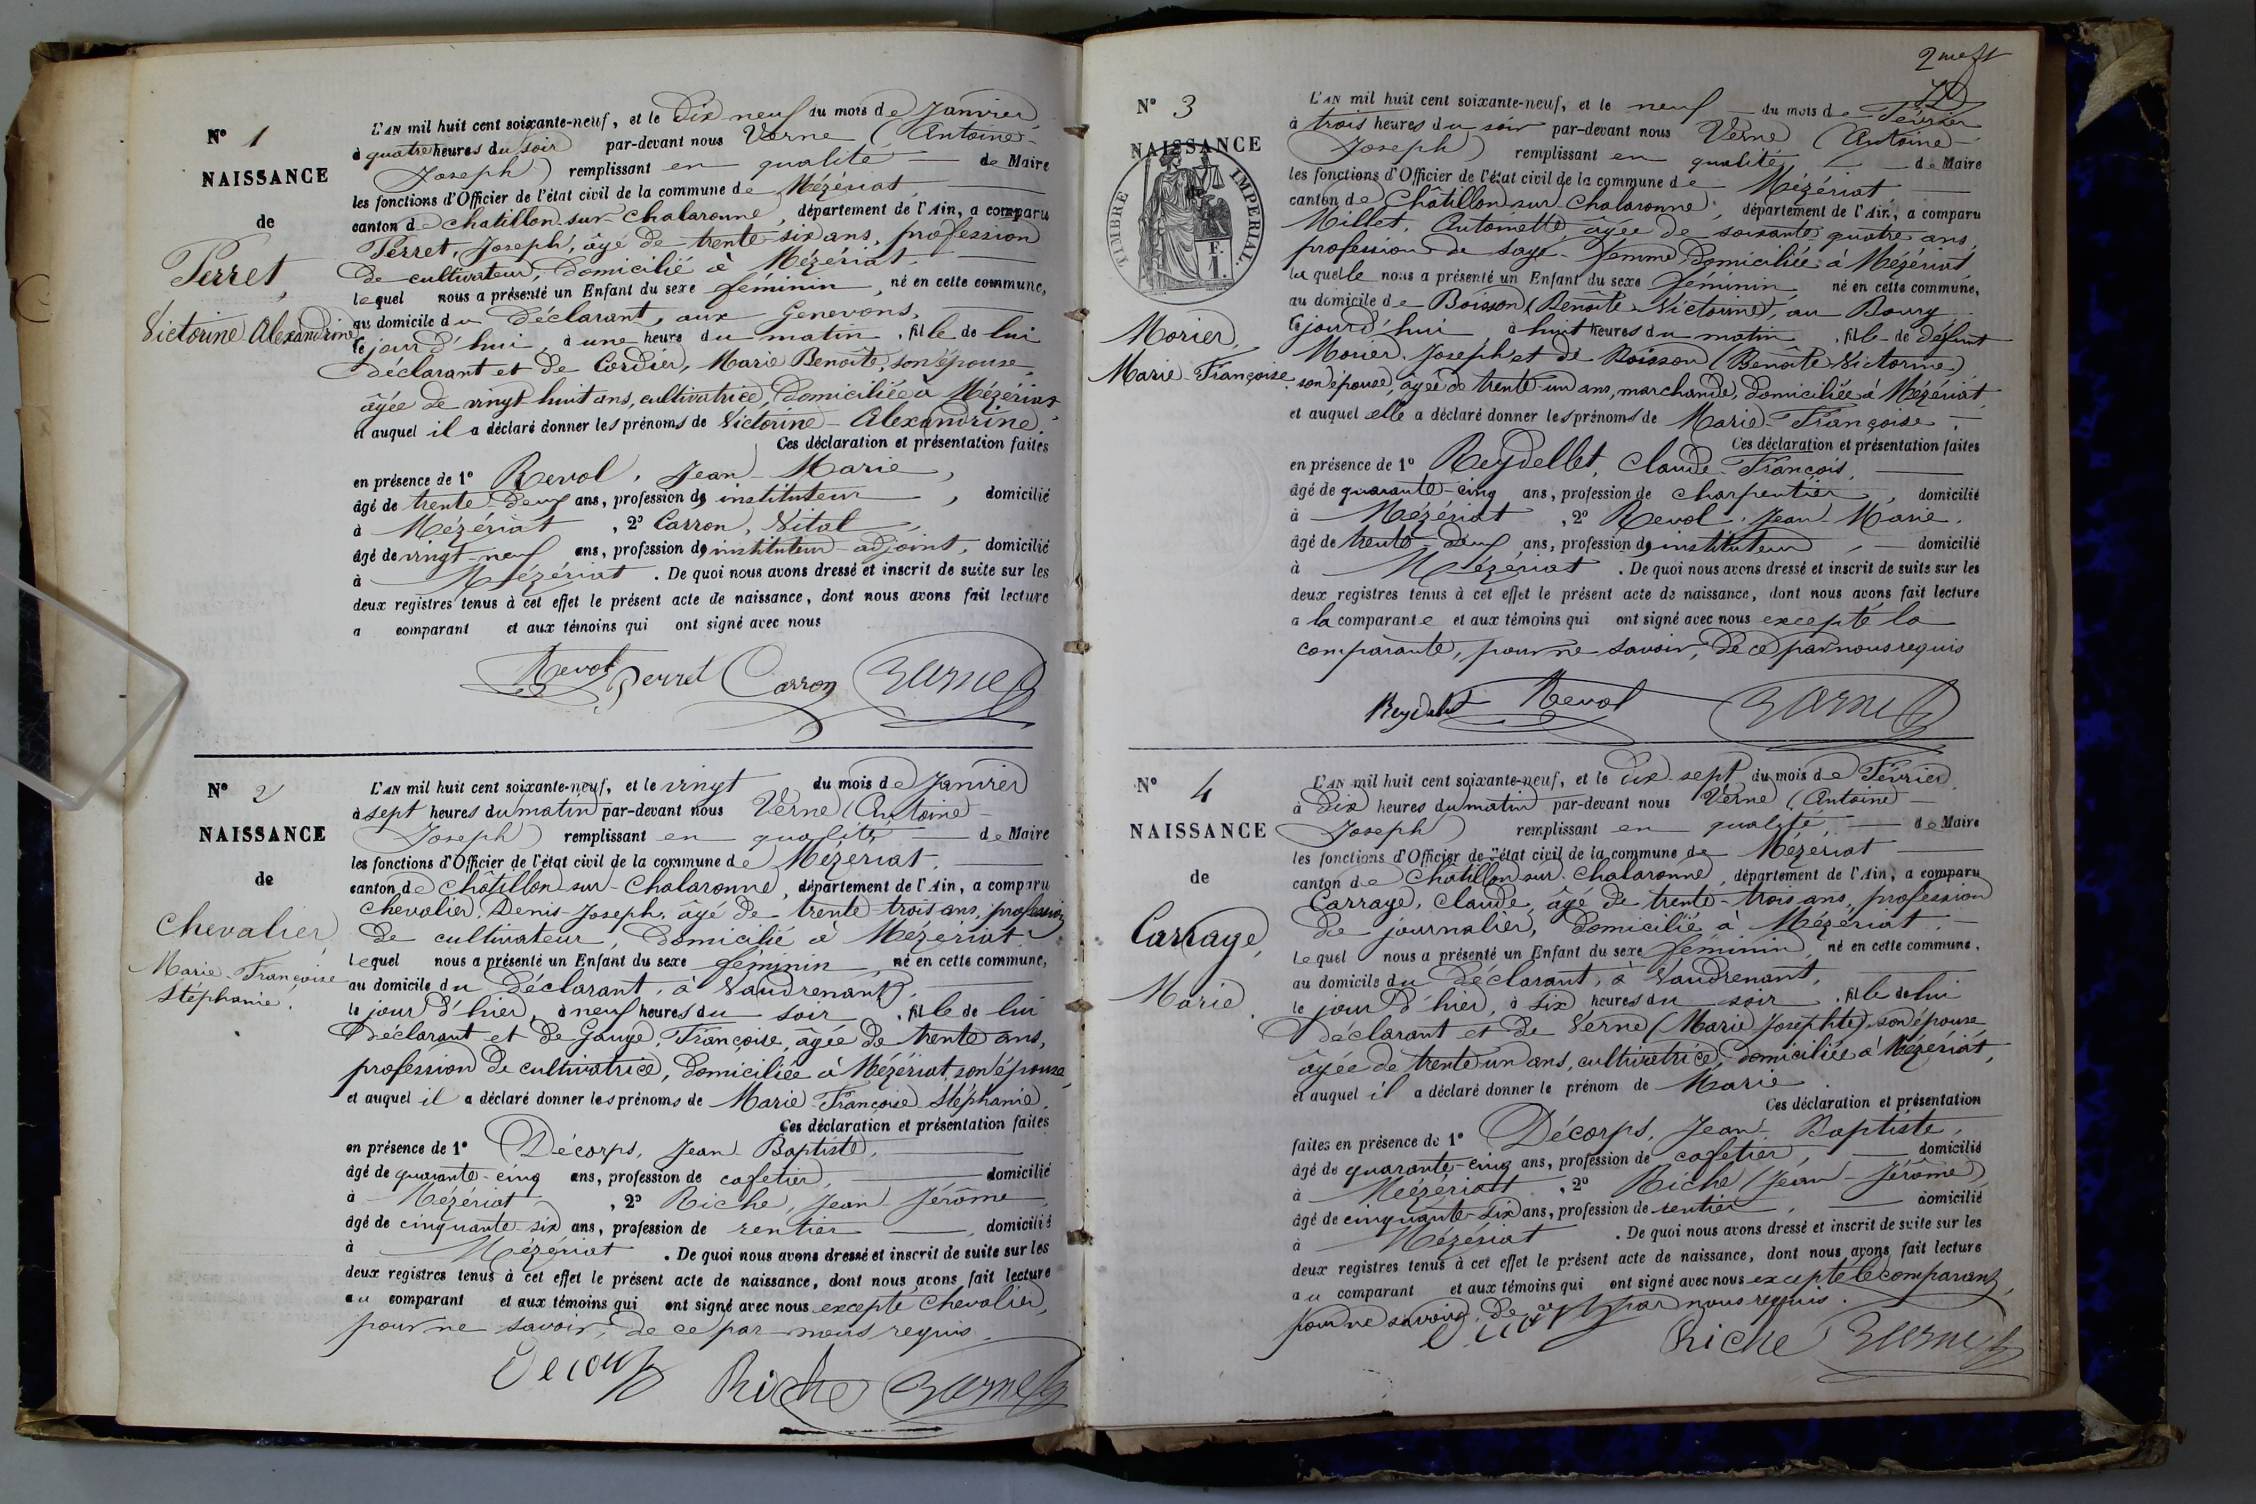 N° 1
NAISSANCE
de
Perret,
Victorine Alexandrine
L'AN mil huit cent soixante-neuf, et le dix neuf du mois de Janvier,
à quatre heures du soir par-devant nous Verne (Antoine-
Joseph) remplissant en qualité de Maire
les fonctions d'Officier de l'état civil de la commune de Mézériat,
canton de Chatillon-sur-Chalaronne, département de l'Ain, a comparu
Perret, Joseph, âgé de trente-six ans, profession
de cultivateur, domicilié à Mézériat.
lequel nous a présenté un Enfant du sexe féminin, né en cette commune,
au domicile du déclarant, aux Genevons,
le jour d'hui, à une heure du matin, fille de lui
déclarant et de Cordier, Marie Benoîte, son épouse,
âgée de vingt-huit ans, cultivatrice, domiciliée à Mézériat,
et auquel il a déclaré donner les prénoms de Victorine-Alexandrine.
Ces déclaration et présentation faites
en présence de 1° Revol, Jean-Marie,
âgé de trente-deux ans, profession de instituteur, domicilié
à Mézériat, 2° Carron, Vital,
âgé de vingt-neuf ans, profession de instituteur-adjoint, domicilié
à Mézériat. De quoi nous avons dressé et inscrit de suite sur les
deux registres tenus à cet effet le présent acte de naissance, dont nous avons fait lecture
a comparant et aux témoins qui ont signé avec nous
Revol Perret Carron Verne
N° 2
NAISSANCE
de
Chevalier,
Marie-Françoise
Stéphanie.
L'AN mil huit cent soixante-neuf, et le vingt du mois de Janvier
à sept heures du matin par-devant nous Verne (Antoine-
Joseph) remplissant en qualité de Maire
les fonctions d'Officier de l'état civil de la commune de Mézériat,
canton de Châtillon-sur-Chalaronne, département de l'Ain, a comparu
Chevalier, Denis-Joseph, âgé de trente-trois ans, profession
de cultivateur, domicilié à Mézériat.
lequel nous a présenté un Enfant du sexe féminin, né en cette commune,
au domicile du déclarant, à Vaudrenant,
le jour d'hier, à neuf heures du soir, fille de lui
déclarant et de Gauge, Françoise, âgée de trente ans,
profession de cultivatrice, domiciliée à Mézériat, son épouse,
et auquel il a déclaré donner les prénoms de Marie-Françoise-Stéphanie.
Ces déclaration et présentation faites
en présence de 1° Décorps, Jean-Baptiste,
âgé de quarante-cinq ans, profession de cafetier, domicilié
à Mézériat, 2° Riche, Jean-Jérôme,
âgé de cinquante-six ans, profession de rentier, domicilié
à Mézériat. De quoi nous avons dressé et inscrit de suite sur les
deux registres tenus à cet effet le présent acte de naissance, dont nous avons fait lecture
au comparant et aux témoins qui ont signé avec nous excepté Chevalier,
pour ne savoir, de ce par nous requis.
Decorps Riche Verne
N° 3
NAISSANCE
TIMBRE IMPERIAL
F.
1.
Morier,
Marie-Françoise
L'AN mil huit cent soixante-neuf, et le neuf du mois de Février
à trois heures du soir par-devant nous Verne (Antoine-
Joseph) remplissant en qualité de Maire
les fonctions d'Officier de l'état civil de la commune de Mézériat,
canton de Châtillon-sur-Chalaronne, département de l'Ain, a comparu
Millet, Antoinette, âgée de soixante-quatre ans,
profession de sage-femme, domiciliée à Mézériat,
laquelle nous a présenté un Enfant du sexe féminin, né en cette commune,
au domicile de Boisson (Benoîte Victorine), au Bourg,
le jour d'hui à huit heures du matin, fille de défunt
Morier, Joseph et de Boisson (Benoîte-Victorine)
son épouse, âgée de trente-un ans, marchande, domiciliée à Mézériat,
et auquel elle a déclaré donner les prénoms de Marie-Françoise.
Ces déclaration et présentation faites
en présence de 1° Reydellet, Claude-François,
âgé de quarante-cinq ans, profession de charpentier, domicilié
à Mézériat, 2° Revol, Jean-Marie,
âgé de trente-deux ans, profession de instituteur, domicilié
à Mézériat. De quoi nous avons dressé et inscrit de suite sur les
deux registres tenus à cet effet le présent acte de naissance, dont nous avons fait lecture
a la comparante et aux témoins qui ont signé avec nous excepté la
comparante, pour ne savoir, de ce par nous requis
Reydellet Revol Verne
N° 4
NAISSANCE
de
Carrage,
Marie.
L'AN mil huit cent soixante-neuf, et le dix-sept du mois de Février
à dix heures du matin par-devant nous Verne (Antoine-
Joseph) remplissant en qualité, de Maire
les fonctions d'Officier de l'état civil de la commune de Mézériat
canton de Châtillon-sur-Chalaronne, département de l'Ain, a comparu
Carrage, Claude, âgé de trente-trois ans, profession
de journalier, domicilié à Mézériat.
lequel nous a présenté un Enfant du sexe féminin, né en cette commune,
au domicile du déclarant, à Vaudrenant,
le jour d'hier, à six heures du soir, fille de lui
déclarant et de Verne (Marie Josephte), son épouse,
âgée de trente-un ans, cultivatrice, domiciliée à Mézériat,
et auquel il a déclaré donner le prénom de Marie.
Ces déclaration et présentation
faites en présence de 1° Décorps, Jean-Baptiste,
âgé de quarante-cinq ans, profession de cafetier, domicilié
à Mézériatt, 2° Riche (Jean-Jérôme)
âgé de cinquante-six ans, profession de rentier, domicilié
à Mézériat. De quoi nous avons dressé et inscrit de suite sur les
deux registres tenus à cet effet le présent acte de naissance, dont nous avons fait lecture
au comparant et aux témoins qui ont signé avec nous excepté le comparant,
pour ne savoir, de ce par nous requis.
Riche Verne